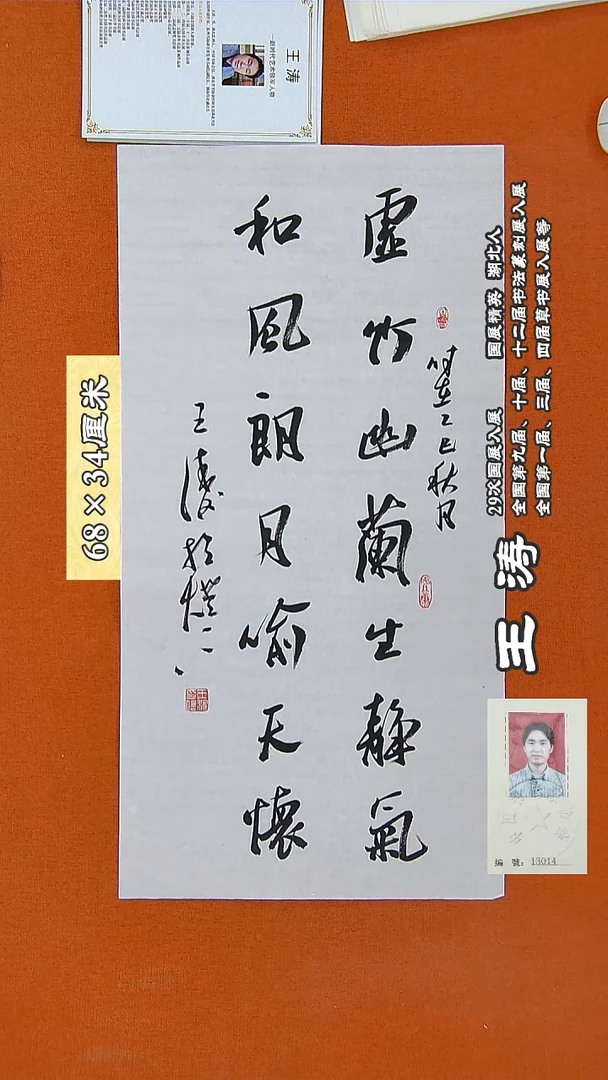 虚竹幽蘭生靜氣
和風朗月喻天懷
時在乙巳秋月
王濤
68×34厘米
国展精英 湖北人
29次国展入展
全国第九届、十届、十二届书法篆刻展入展
全国第一届、三届、四届草书展入展等
王 涛
编 號: 13014
王 涛